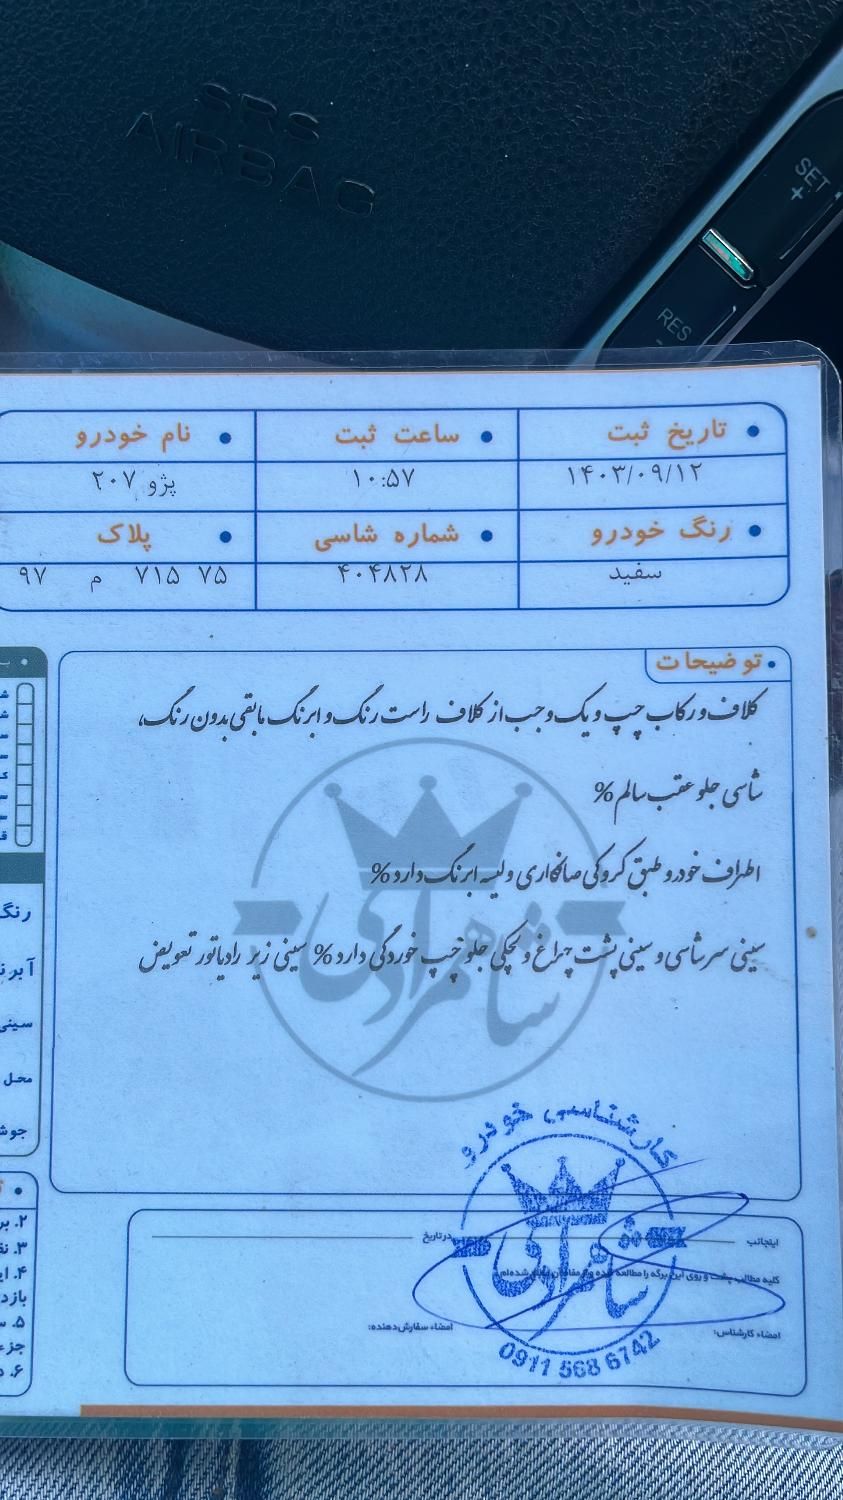 SRS
AIRBAG
SET
+
RES
-
تاریخ ثبت • ساعت ثبت • نام خودرو •
۱۴۰۳/۰۹/۱۲ ۱۰:۵۷ پژو ۲۰۷
رنگ خودرو • شماره شاسی • پلاک •
سفید ۴۰۴۸۲۸ ۷۵ ۷۱۵ م ۹۷
توضیحات •
کلاف و رکاب چپ و یک وجب از کلاف راست رنگ و ابرنگ مابقی بدون رنگ،
شاسی جلو عقب سالم %
اطراف خودرو طبق کروکی صافکاری و لیسه ابرنگ دارد %
سینی سرشاسی و سینی پشت چراغ و لچکی جلو چپ خوردگی دارد % سینی زیر رادیاتور تعویض
شاهمرادی
کارشناسی خودرو
شاهمرادی
0911 568 6742
اینجانب
در تاریخ
کلیه مطالب پشت و روی این برگه را مطالعه
امضاء کارشناس:
امضاء سفارش‌دهنده:
رنگ
سینی
محل
جوش
۲. بر
۳.
۴.
بازد
۵.
۶.